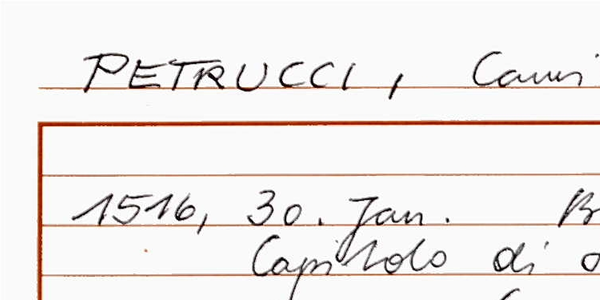 PETRUCCI,
1516, 30. Jan.
Capitolo di